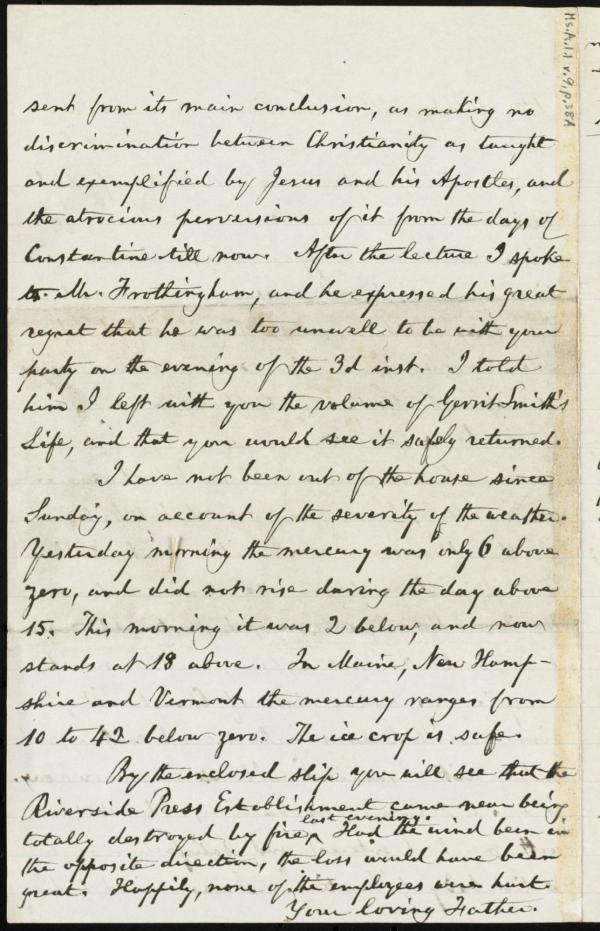 Ms.A.1.1 v.9, p.38A
sent from its main conclusion, as making no
discrimination between Christianity as taught
and exemplified by Jesus and his Apostles, and
the atrocious perversions of it from the days of
Constantine till now. After the lecture I spoke
to Mr. Frothingham, and he expressed his great
regret that he was too unwell to be with your
party on the evening of the 3d inst. I told
him I left with you the volume of Gerrit Smith's
Life, and that you would see it safely returned.
I have not been out of the house since
Sunday, on account of the severity of the weather.
Yesterday morning the mercury was only 6 above
zero, and did not rise during the day above
15. This morning it was 2 below, and now
stands at 18 above. In Maine, New Hamp-
shire and Vermont the mercury ranges from
10 to 42 below zero. The ice crop is safe.
By the enclosed slip you will see that the
Riverside Press Establishment came near being
last evening.
totally destroyed by fire‸ Had the wind been in
the opposite direction, the loss would have been
great. Happily, none of the employees were hurt.
Your loving Father.